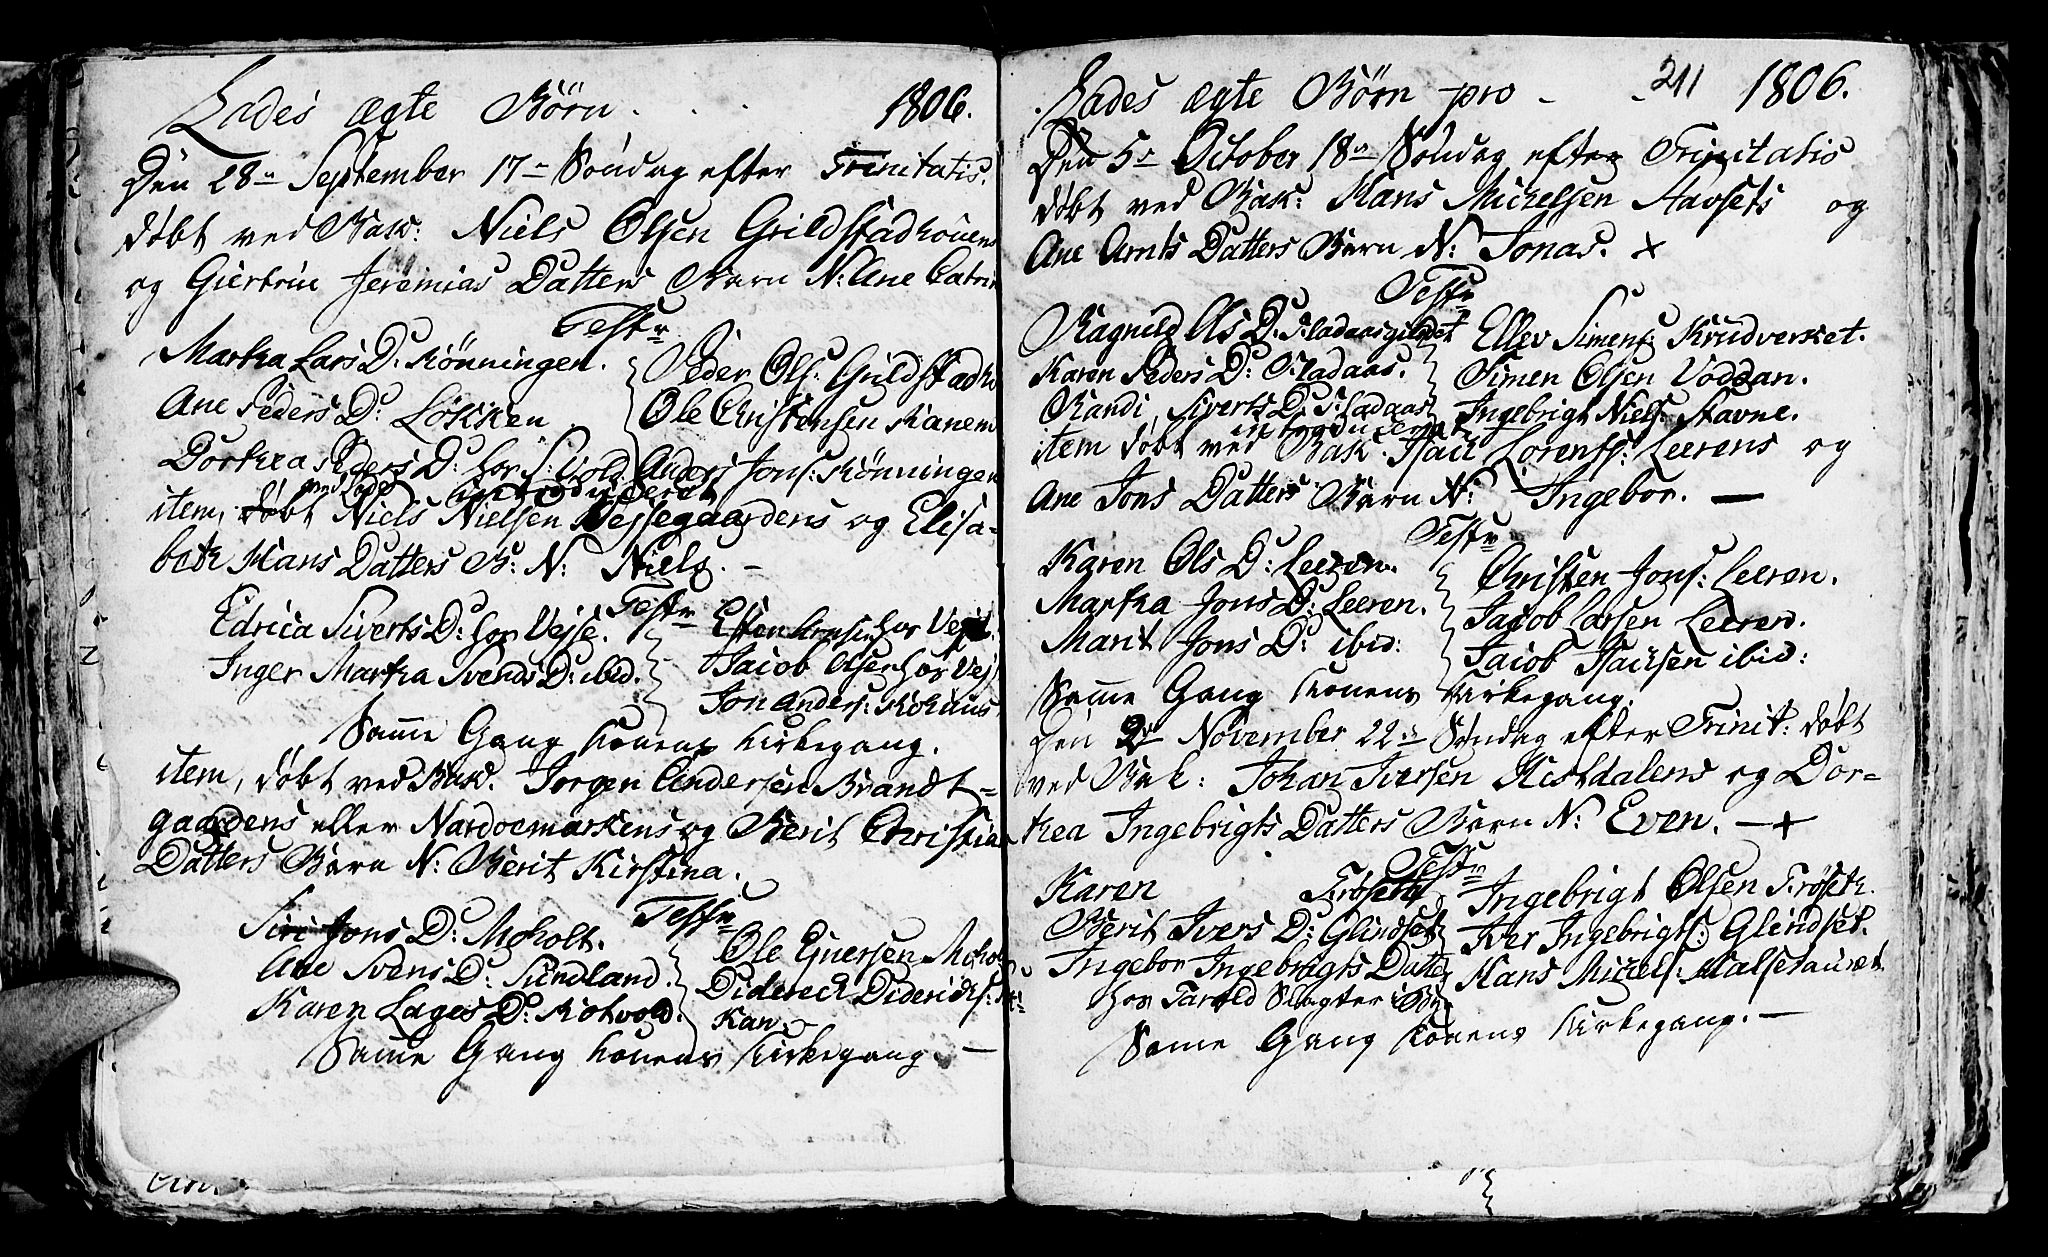 Lades ægte Børn. 1806.
Den 28de September 17de Søndag efter Trinitatis.
døbt ved Bakk: Niels Olsen Grildstadhouens
og Giertrin Jeremias Datters Barn N: Ane Catrin
Testes
Martha Lars D: Rönningen.
Ane Peders D: Løkken
Dorthea Peders D: hos S: Vold
Peder Ols: Grildstadho
Ole Christensen Ranem
Anders Jons: Rönningen
ved Lade introduceret
item, døbt Niels Nielsen Vejsegaardens og Elisa-
beth Hans Datters B: N: Niels. -
Testes
Edrica Siverts D: hos Vejse.
Inger Martha Svends D: ibid.
Esten hos
Jacob Olsen hos Vej
Jon Anders: Rohuus
Samme Gang konens Kirkegang.
item, døbt ved Bakk. Jørgen Andersen Brandt-
gaardens eller Nardoemarkens og Berit Christian
Datters Barn N: Berit Kirstina.
Testes
Siri Jons D: Moholt.
Ane Svens D: Sundland.
Karen Lages D: Rotvold.
Ole Ejnersen Moho
Didereck Diderichs:
Kan
Samme Gang konens Kirkegang. -
Lades ægte Børn pro - - 211 1806.
Den 5te October 18de Søndag efter Trinitatis
døbt ved Bakk: Hans Mickelsen Havsets og
Ane Arnts Datters Barn N: Jonas. +
Testes
Ragnild Ols D: Sladaasgildet
Karen Peders D: Sladaas.
Randi Siverts D: Sladaas
Ellev Simens: Krudverket.
Simen Olsen Voddan.
Ingebrigt Niels: Stavne.
introduceret
item døbt ved Bakk. Isach Lorents: Leerens og
Ane Jons Datters Barn N: Ingebor. -
Testes
Karen Ols D: Leeren.
Martha Jons D: Leeren.
Marit Jons D: ibid:
Christen Jons: Leeren.
Jacob Larsen Leeren.
Jacob Isachsen ibid:
Samme Gang konens Kirkegang.
Den 2den November 22de Søndag efter Trinit: døbt
ved Bak: Johan Iversen Kistdalens og Dor-
thea Ingebrigts Datters Barn N: Even. - +
Testes
Karen Frøseth
Berit Ivers D: Glindset
Ingebor Ingebrigts Datter
hos Tarald Slagter i Bÿen
Ingebrigt Olsen Frøseth.
Iver Ingebrigts: Glindset.
Hans Mickels: Halsetauret
Samme Gang konens Kirkegang. -